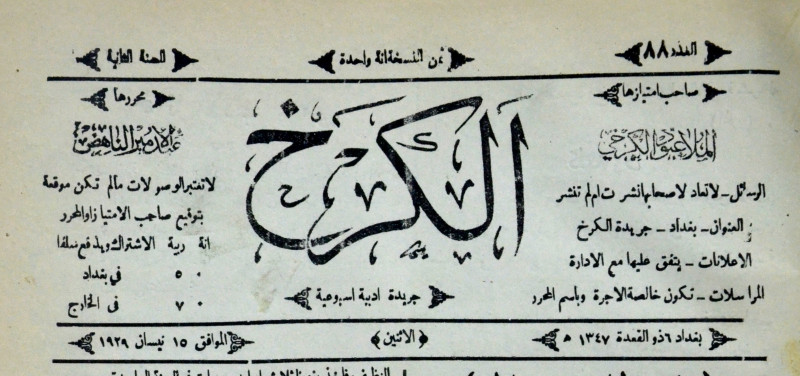 العدد ٨٨
ثمن النسخة انة واحدة
السنة الثانية
صاحب امتيازها
الملا عبود الكرخي
الرسائل ـ لاتعاد لاصحابها نشرت ام لم تنشر
العنوان ـ بغداد ـ جريدة الكرخ
الاعلانات ـ يتفق عليها مع الادارة
المراسلات ـ تكون خالصة الاجرة وباسم المحرر
الكرخ
جريدة ادبية اسبوعية
محررها
عبد الامير الناهض
لاتعتبر الوصولات مالم تكن موقعة
بتوقيع صاحب الامتياز او المحرر
انة ربية الاشتراك ويدفع سلفا
٠ ٥ في بغداد
٠ ٧ في الخارج
بغداد ٦ ذو القعدة ١٣٤٧ هـ
(الاثنين)
الموافق ١٥ نيسان ١٩٢٩